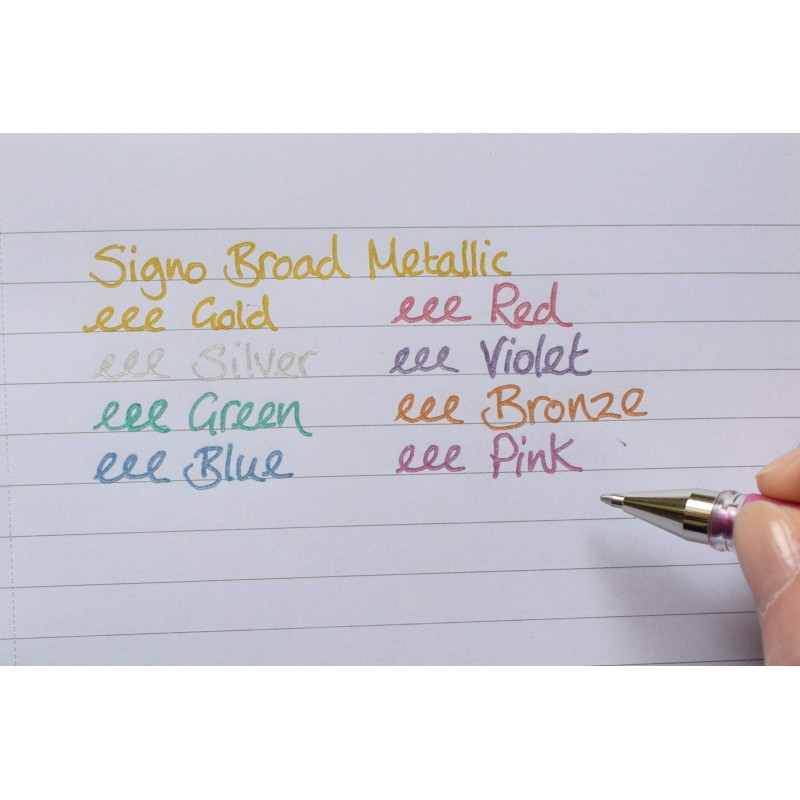 Signo Broad Metallic
eee Gold
eee Silver
eee Green
eee Blue
eee Red
eee Violet
eee Bronze
eee Pink